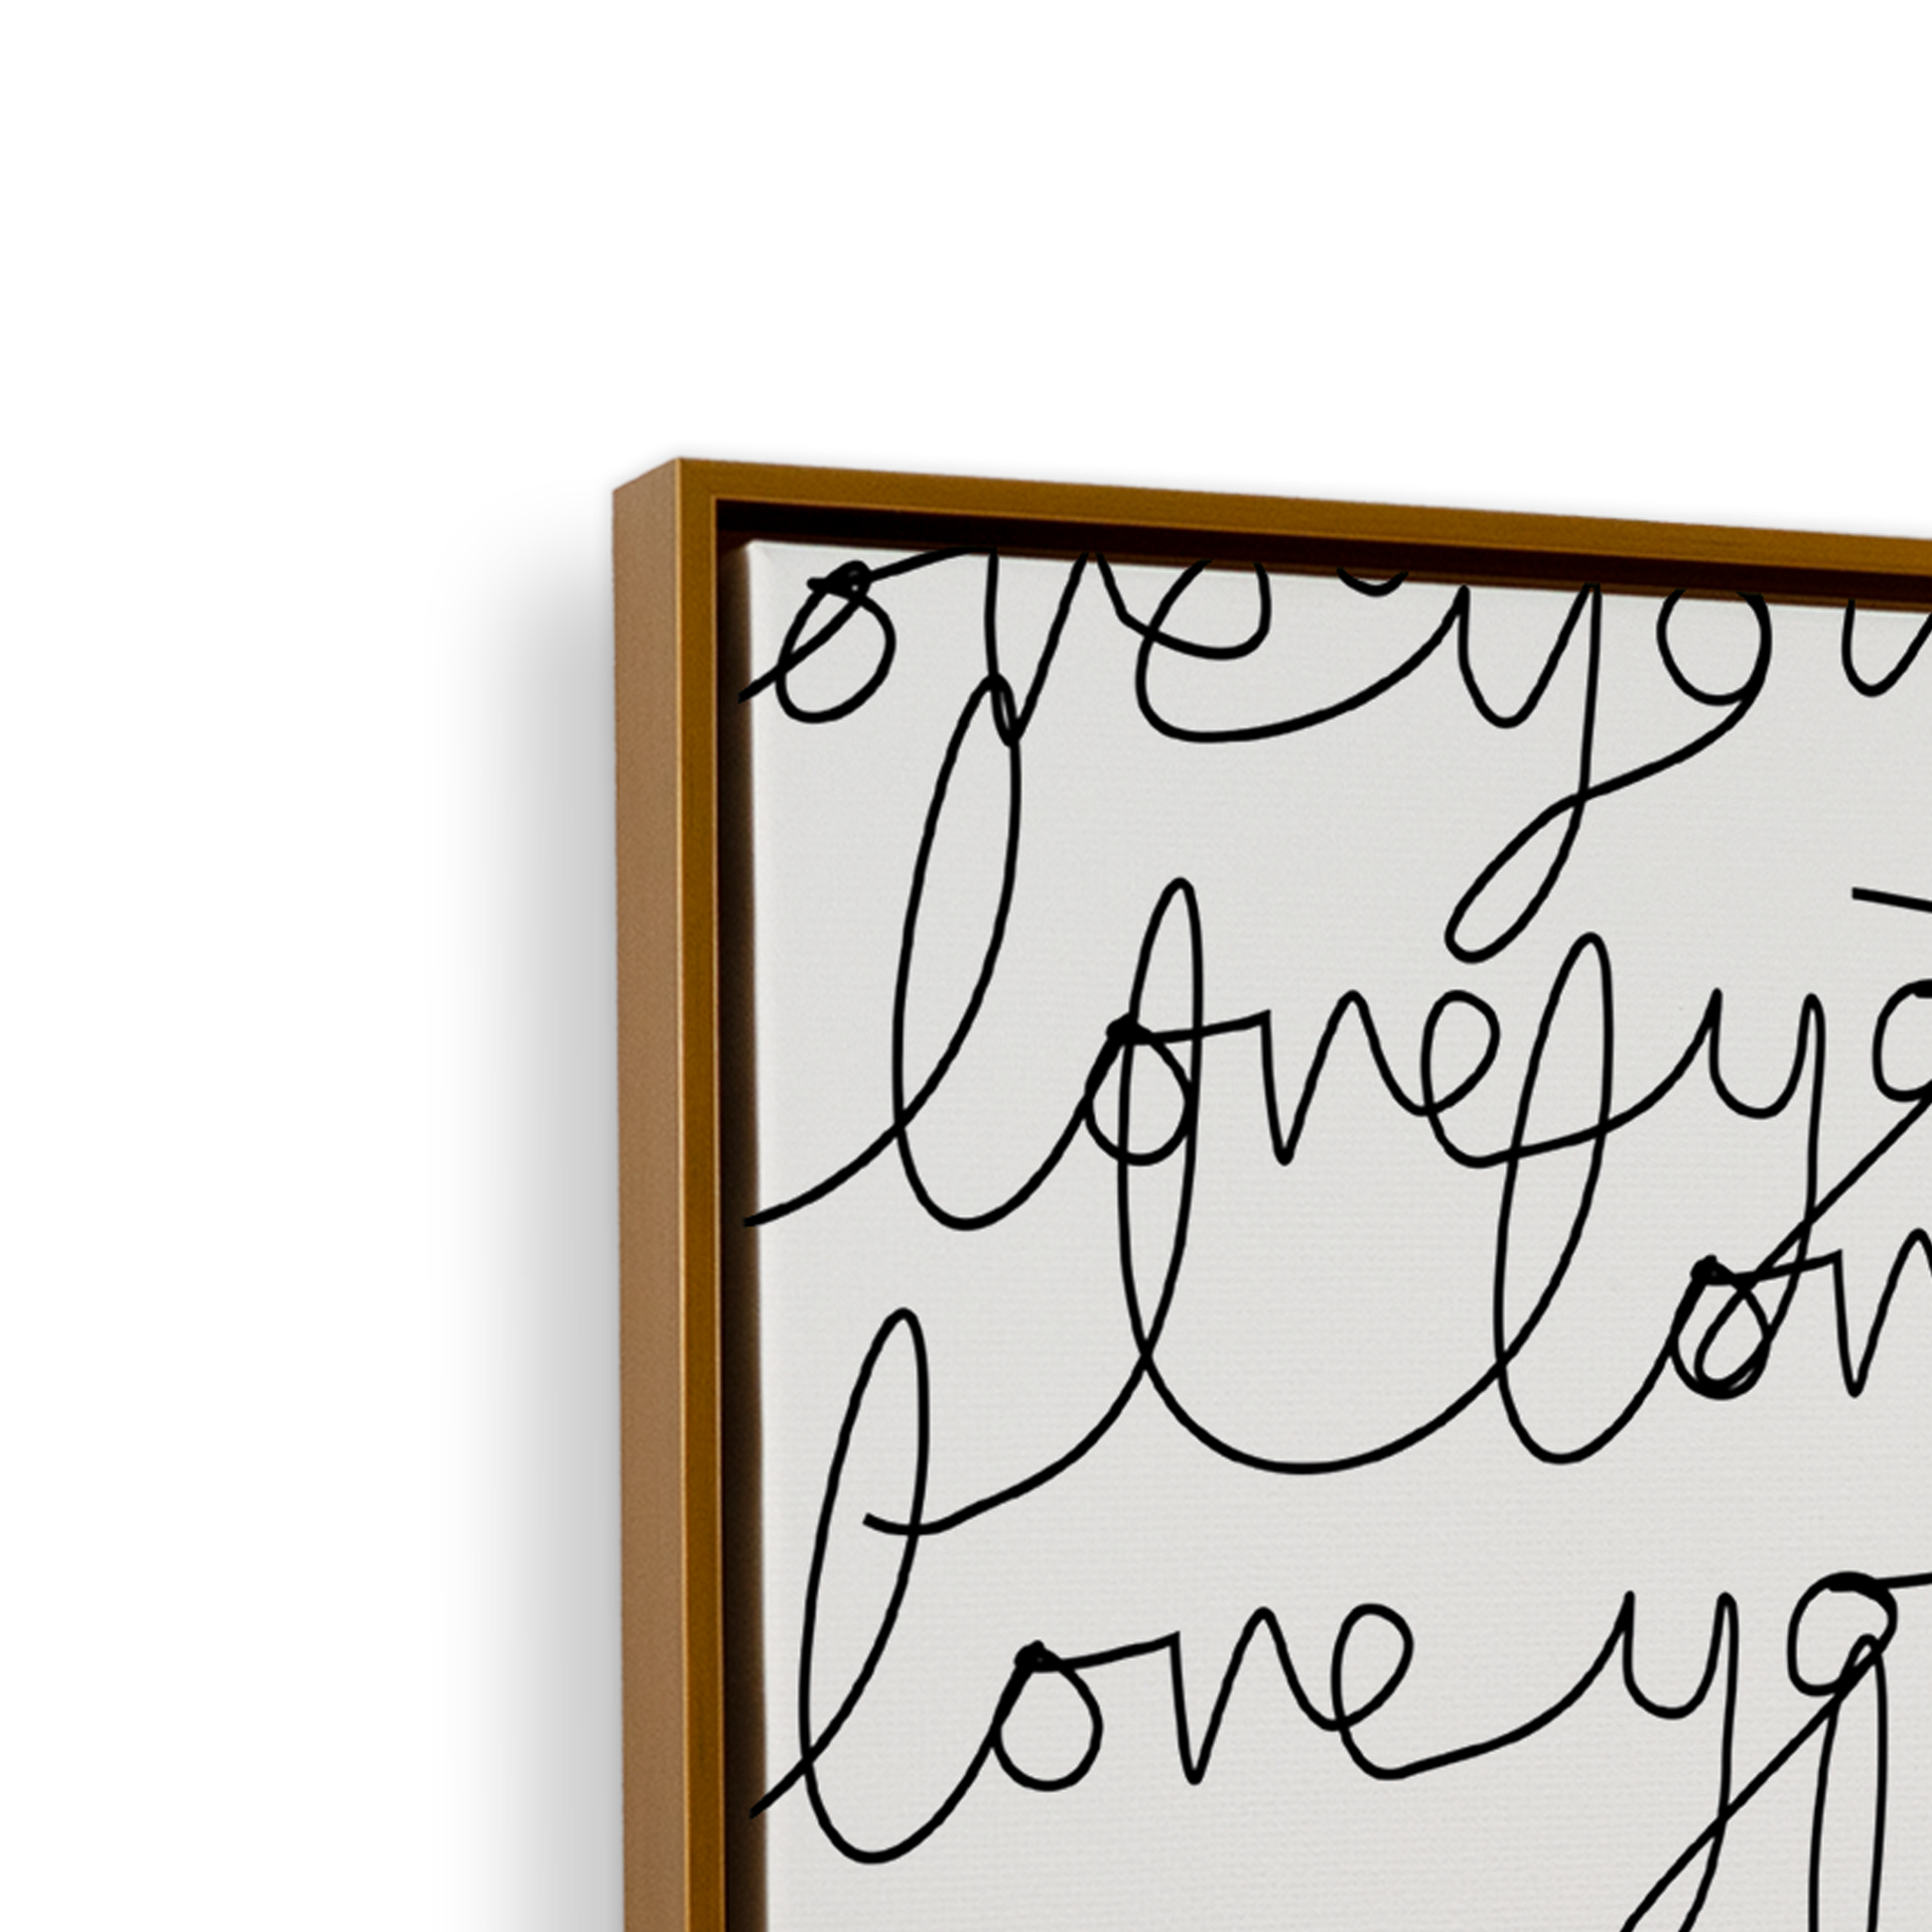 ove you
love yo
I lov
love yo